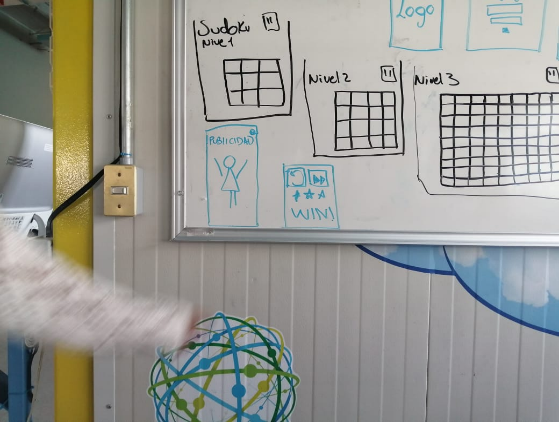 Logo
Sudoku
Nivel 1
Nivel 2
Nivel 3
PUBLICIDAD
WINS